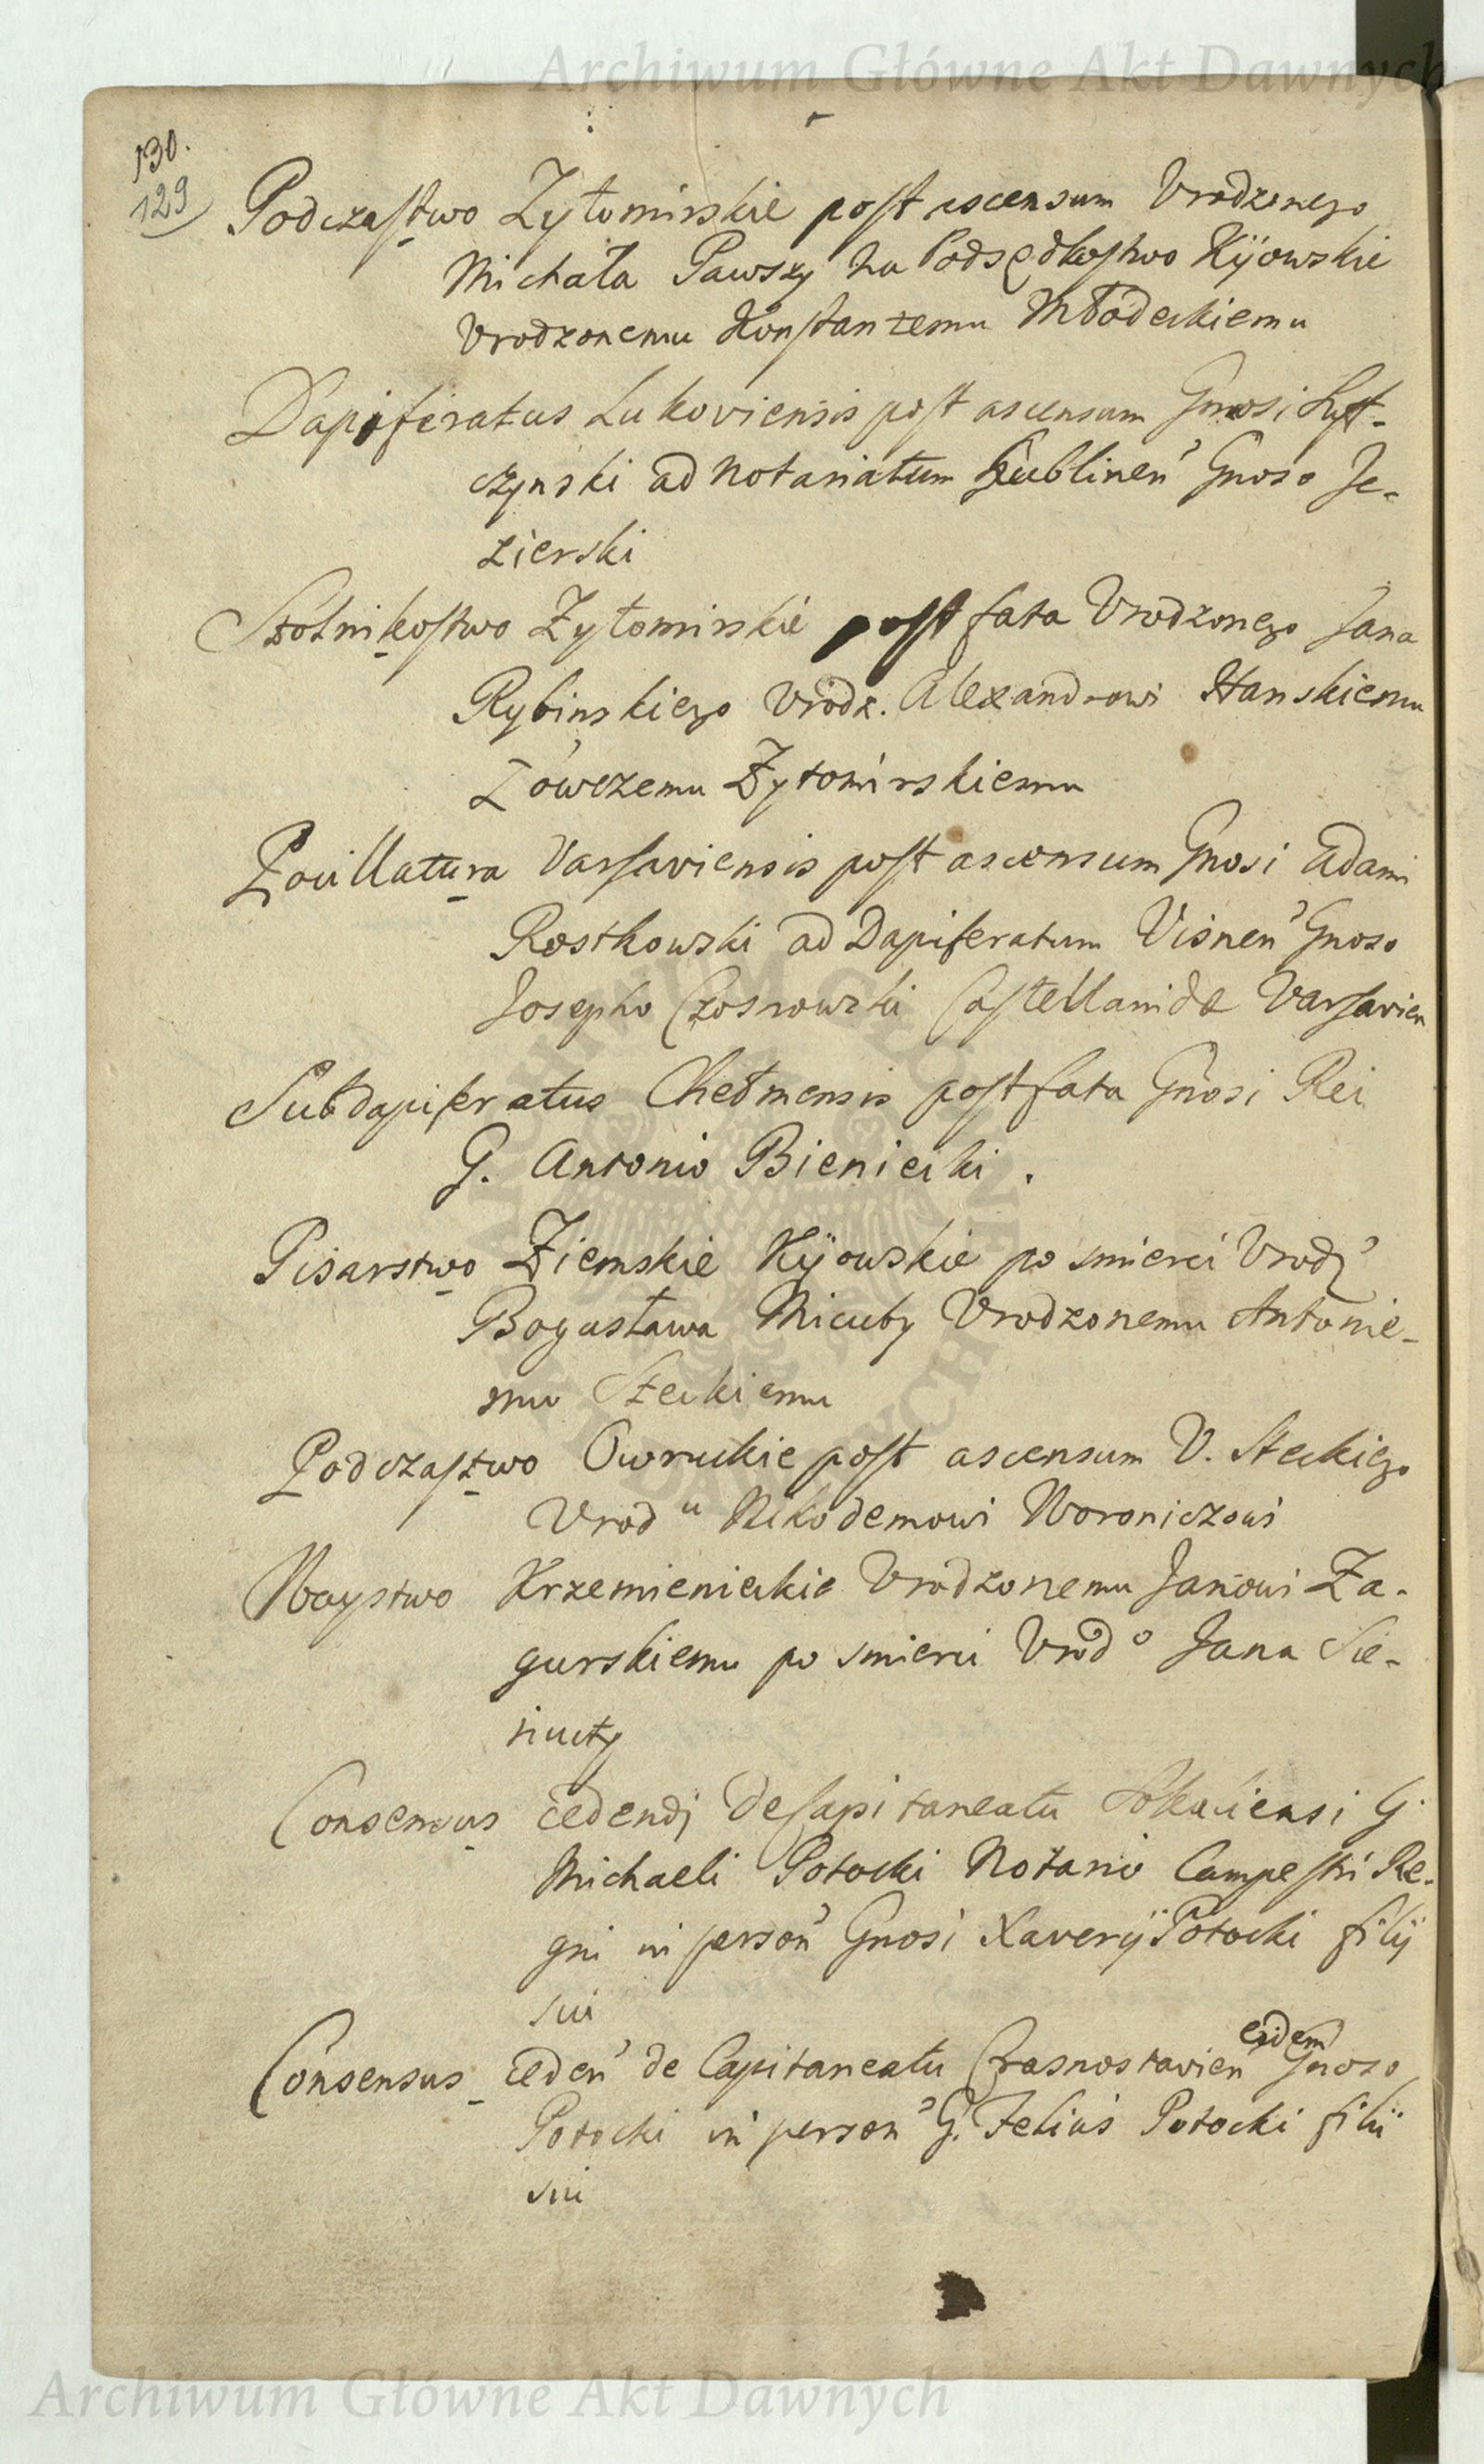 Archiwum Główne Akt Dawnych
130.
129
Podczastwo Zytomirskie post ascensum Urodzonego
Michała Pawszy na Podsędkostwo Kijowskie
Urodzonemu Konstantemu Młodeckiemu
Dapiferatus Lukoviensis post ascensum Gnosi
czynski ad Notariatum Lublinen Gnoso Je-
zierski
Stolnikostwo Zytomirskie post fata Urodzonego Jana
Rybinskiego Urodz. Alexandrowi Hanskiemu
Łowczemu Zytomirskiemu
Pocillatura Varsaviensis post ascensum Gnosi Adami
Rostkowski ad Dapiferatum Visnen Gnoso
Josepho Czosnowski Castellanidæ Varsavien
Subdapiferatus Chełmensis post fata Gnosi Rei
G. Antonio Bieniecki.
Pisarstwo Ziemskie Kijowskie po smierci Urodz
Bogusława Micuty Urodzonemu Antonie-
mu Steckiemu
Podczastwo Owruckie post ascensum U. Steckiego
Urod u Nikodemowi Woroniczowi
Woystwo Krzemienieckie Urodzonemu Janowi Za-
gurskiemu po smierci Urod o Jana Sie-
nuty
Consensus cedendi de Capitaneatu Sokaliensi G.
Michaeli Potocki Notario Campestri Re-
gni in person Gnosi Xaverij Potocki filij
sui
Consensus ceden de Capitaneatu Crasnostavien eidem Gnoso
Potocki in person G. Felicis Potocki filii
sui
Archiwum Główne Akt Dawnych